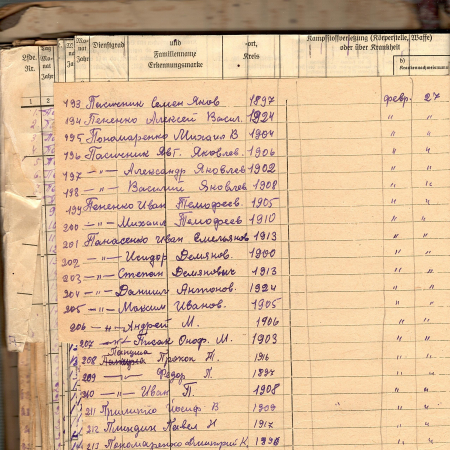 Lfde. Nr.
Mo-nat Jahr
Dienstgrad
und
Familienname
Erkennungsmarke
-ort,
Kreis
Kampfstoffverletzung (Körperstelle, Waffe)
oder über Krankheit
b)
Krankennachweisnummer
1 2
193 Пасичник Семен Янов 1897 февр. 27
194 Пененко Алексей Васил. 1924 " "
195 Пономаренко Михаил В 1904 " "
196 Пасичник Явг. Яковлев. 1906 " "
197 —"— Александр Яковлев 1902 " "
198 —"— Василий Яковлев 1908 " "
199 Пененко Иван Темофеев. 1905 " "
200 —"— Михаил Темофеев 1910 " "
201 Панасенко Иван Емельянов 1913 " "
202 —"— Исидор Демянов. 1900 " "
203 —"— Степан Демянович 1913 " "
204 —"— Даниил Антонов. 1924 " "
205 —"— Максим Иванов. 1905 " "
206 —"— Андрей М. 1906 " "
207 —"— Писак Оноф. М. 1903 " "
208 Прокоп Т. 1916 " "
209 —"— Федор П. 1897 " "
210 —"— Иван П. 1908 " "
211 Иосиф В 1909 " "
212 Павел И 1917 " "
213 Пономаренко Дмитрий К.